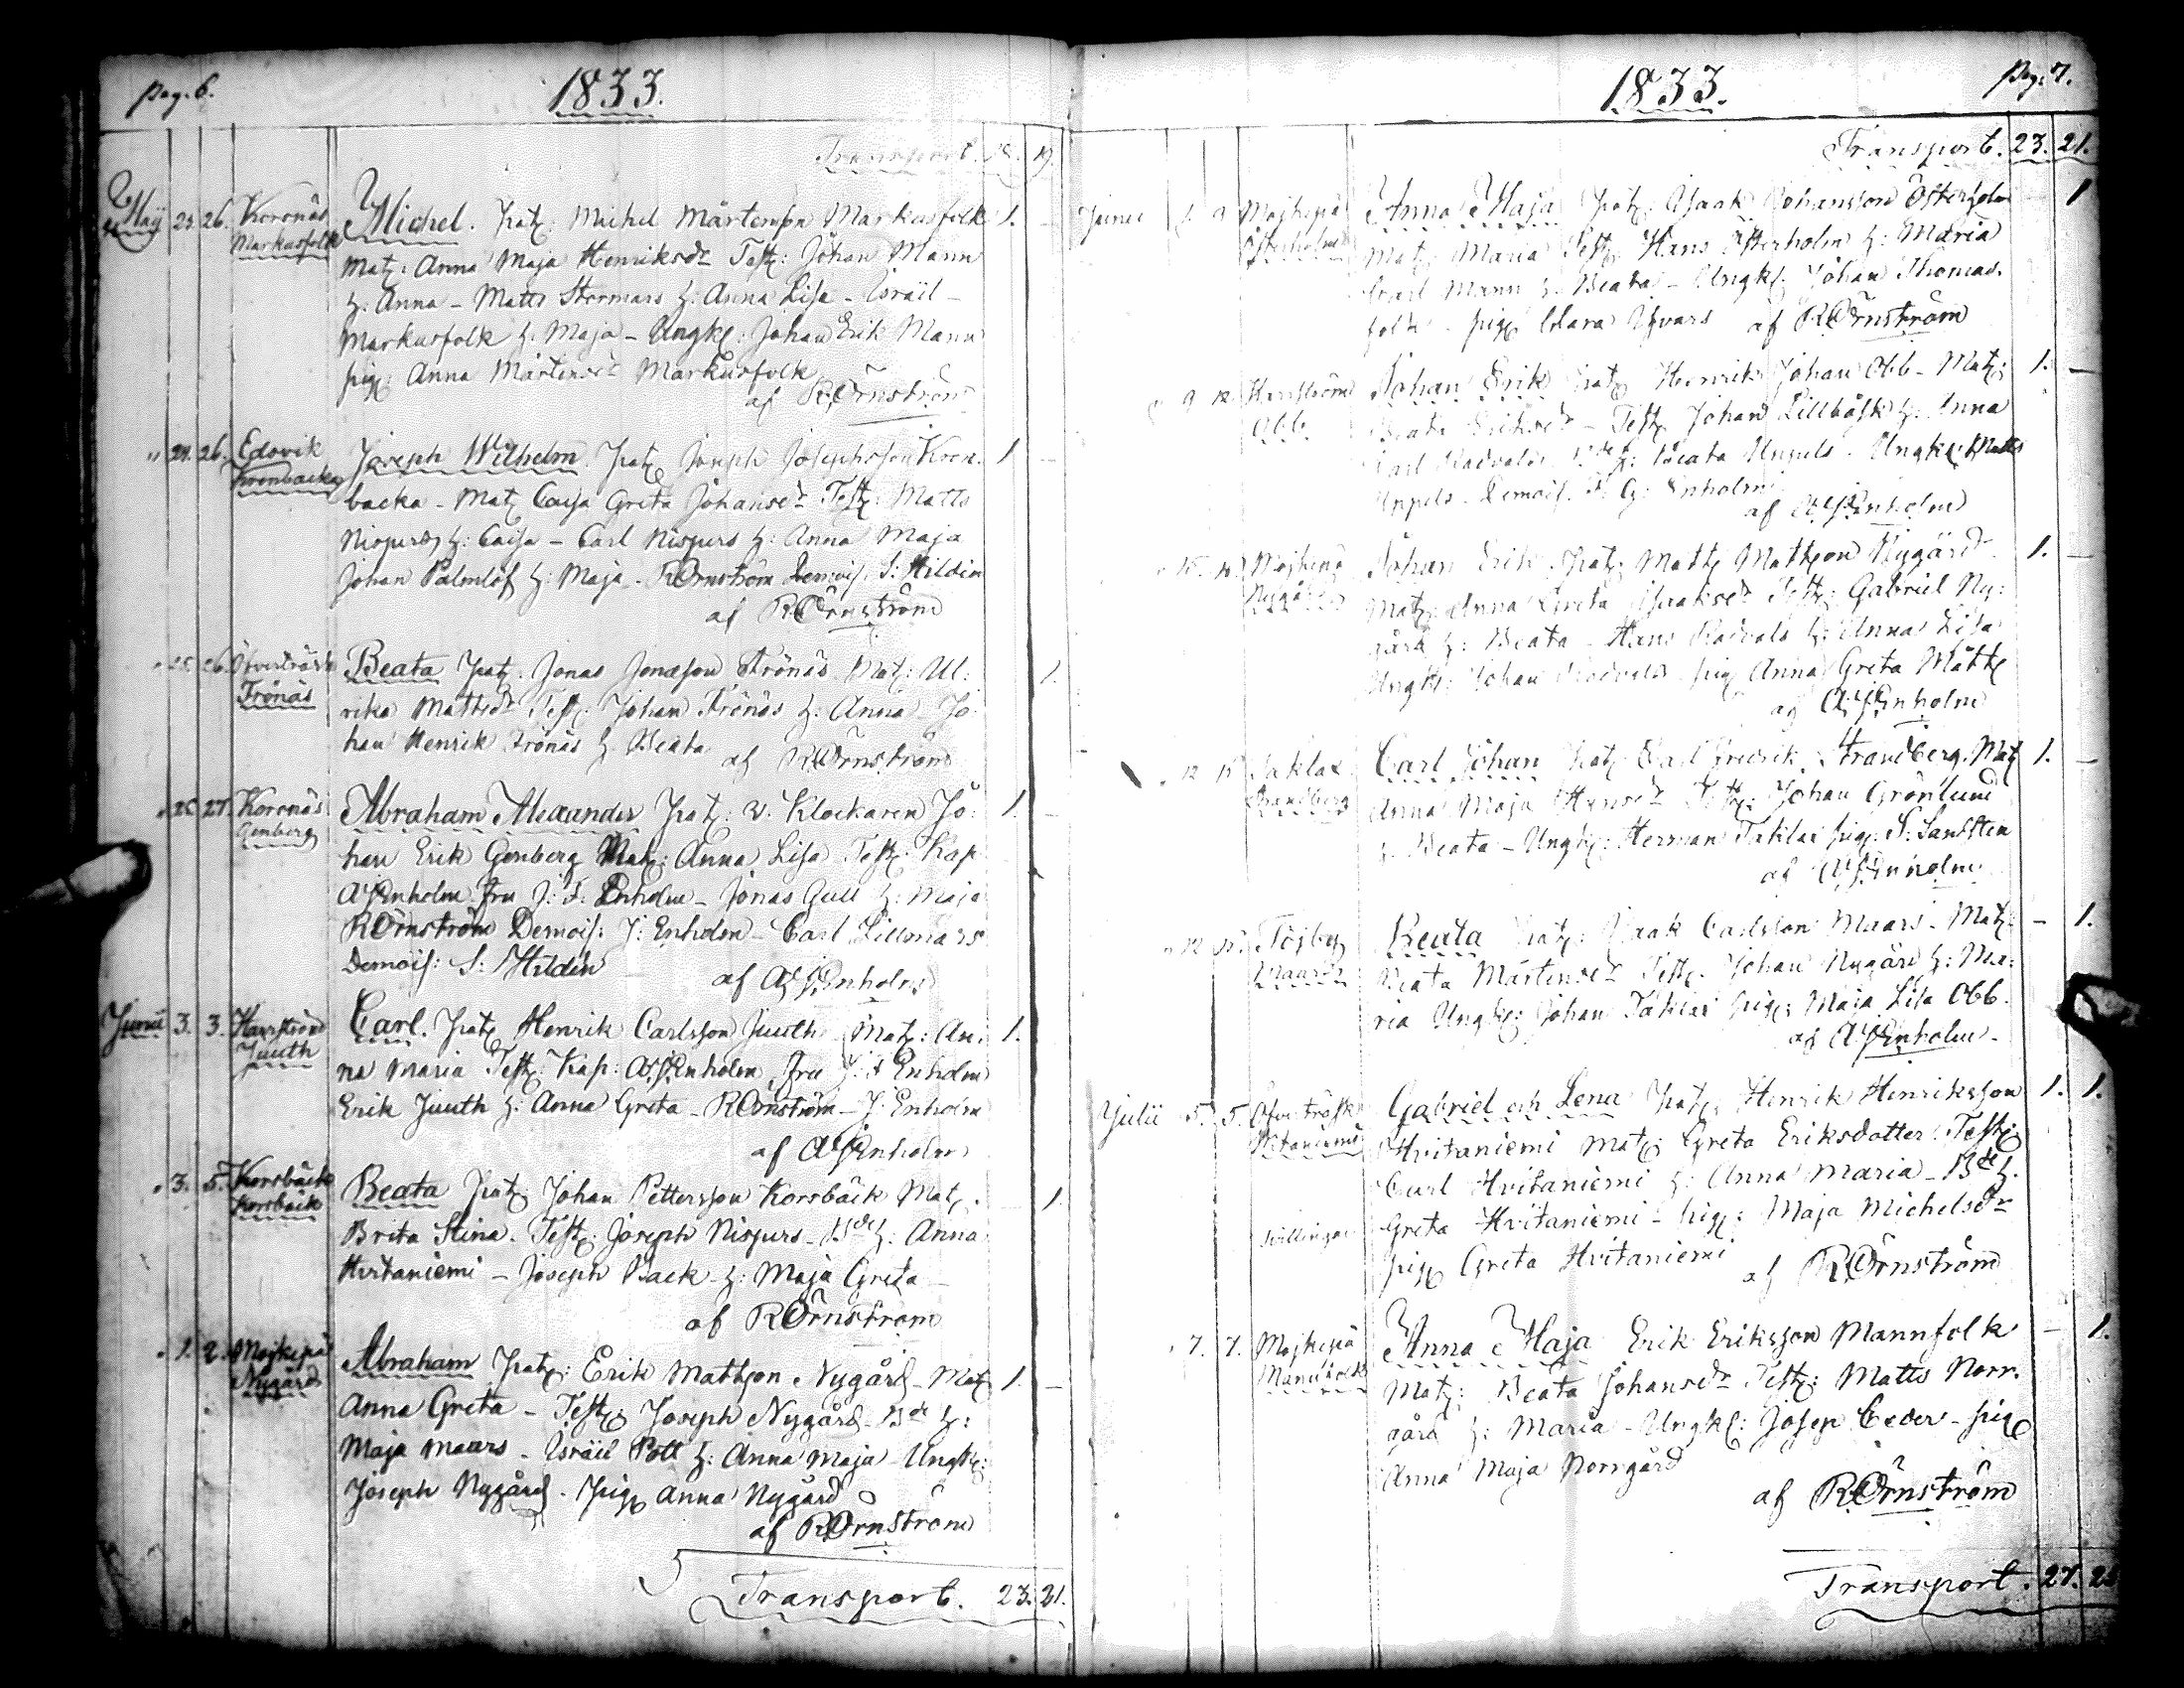 pag. 6.
1833.
Transport. 18. 19.
Maij 25. 26. Korsnäs Michel. Patr: Michel Mårtensson Markusfolk 1. –
Markusfolk Matr: Anna Maja Henriksdr Test: Johan Mann
h: Anna – Matts Stormars h: Anna Lisa – Israël –
Markusfolk h: Maja – Ungk: Johan Erik Mann
pig: Anna Mårtensdr Markusfolk
af R Örnström
" 24. 26. Edsvik Joseph Wilhelm Patr: Joseph Josephsson Kron- 1
Kronbacka backa – Matr Caisa Greta Johansdr Test: Matts
Nispers h: Caisa – Carl Nispers h: Anna Maja
Johan Palmlöf h: Maja – R Örnström Demois. S: Hildin
af R Örnström
" 25. 26. Öfverträsk Beata Patr. Jonas Jonasson Frönäs Matr: Ul- 1.
Frönäs rika Mattsdr Test: Johan Frönäs h: Anna – Jo-
han Henrik Frönäs h: Beata
af R Örnström
" 26. 27. Korsnäs Abraham Alexander Patr: v. Klockaren Jo- 1. –
Genberg han Erik Genberg Matr: Anna Lisa Test: Kap
A Enholm Fru J: F: Enholm – Jonas Gull h: Maja
R Örnström Demois: J: Enholm – Carl Lillmars
Demois: S: Hildin
af A Enholm
Junii 3. 3. Harrström Carl. Patr Henrik Carlsson Juuth Matr: An- 1.
Juuth na Maria Test: Kap: A Enholm Fru J: F Enholm
Erik Juuth h: Anna Greta – R Örnström – J: Enholm
af A Enholm
" 3. 5. Korsbäck Beata Patr Johan Pettersson Korsbäck Matr. 1.
Korsbäck Brita Stina. Test: Joseph Nispers – Bde h: Anna
Hvitaniemi – Joseph Back – h: Maja Greta –
af R Örnström
" 1. 2. Mojkepä Abraham Patr: Erik Mattsson Nygård – Matr 1. –
Nygård Anna Greta – Test: Joseph Nygård – Bde h:
Maja Maars – Israël Pott h: Anna Maja – Ungk:
Joseph Nygård. Pig Anna Nygård
af R Örnström
Transport. 23. 21.
1833.
Pag. 7.
Transport. 23. 21.
Junii 1. 9 Mojkepä Anna Maja Patr: Isaak Johansson Österholm 1
Österholm Matr Maria Test: Hans Österholm h: Maria
Carl Mann h: Beata – Ungk: Johan Thomas-
folk – pig Clara Ifvars af R Örnström
9 12 Harrström Johan Erik Patr Henrik Johan Obb – Matr: 1. –
Obb Beata Eriksdr – Test: Johan Lillbåsk h: Anna
Carl Rådvals Bde h: Beata Uppels – Ungk: Matts
Uppels – Demois. Enholm
af A Enholm
" 15. 16. Mojkepä Johan Erik. Patr: Matts Mattsson Nygård 1. –
Nygård Matr: Anna Greta Isaaksdr Test: Gabriel Ny-
gård h: Beata – Hans Rådvals h: Anna Lisa
Ungk: Johan Rådvals pig Anna Greta Matts
af A Enholm
" 12 15 Taklax Carl Johan Patr Carl Fredrik Strandberg. Matr 1. –
Strandberg Anna Maja Hansdr Test: Johan Grönlund
h. Beata – Ungk: Herman Taklax pig: S: Sandsten
af A Enholm
" 12 15. Töjby Beata Patr: Isaak Carlsson Maars – Matr: – 1.
Maars Beata Mårtensdr Test. Johan Nygård h: Ma-
ria Ungk: Johan Taklax pig: Maja Lisa Obb.
af A Enholm –
Julii 5. 5. Öfverträsk Gabriel och Lena Patr: Henrik Henriksson 1. 1.
Hvitaniemi Hvitaniemi Matr: Greta Eriksdotter. Test:
Carl Hvitaniemi h: Anna Maria – Bde h.
tvillingar Greta Hvitaniemi – pig: Maja Michelsdr
pig Greta Hvitaniemi
af R Örnström
" 7. 7. Mojkepä Anna Maja Erik Eriksson Mannfolk – 1.
Mannfolk Matr: Beata Johansdr Test: Matts Norr-
gård h: Maria – Ungk: Josep Ceder – pig
Anna Maja Norrgård
af R Örnström
Transport. 27. 25